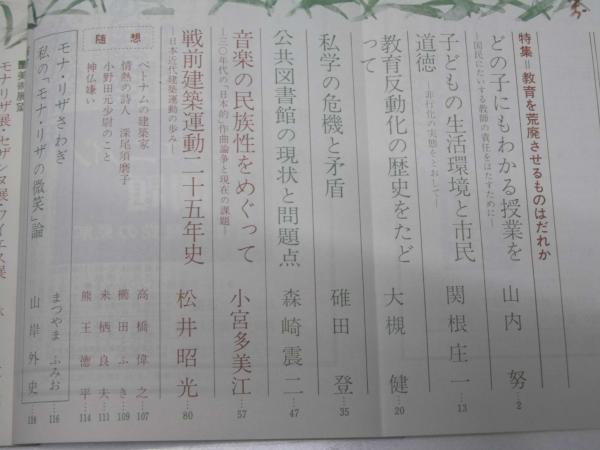 特集=教育を荒廃させるものはだれか
どの子にもわかる授業を 山内 努…2
―国民にたいする教師の責任をはたすために―
子どもの生活環境と市民道徳 関根庄一…13
―非行化の実態をとおして―
教育反動化の歴史をたどって 大槻 健…20
私学の危機と矛盾 碓田 登…35
公共図書館の現状と問題点 森崎震二…47
音楽の民族性をめぐって 小宮多美江…57
―三〇年代の「日本的」作曲論争と現在の課題―
戦前建築運動二十五年史 松井昭光…80
―日本近代建築運動の歩み―
随想
ベトナムの建築家 高橋偉之…107
情熱の詩人 深尾須磨子 櫛田ふき…109
小野田元少尉のこと 来栖良夫…111
神仏嫌い 熊王徳平…114
モナ・リザさわぎ まつやまふみお…116
私の「モナ・リザの微笑」論 山岸外史…118
■美術展望
モナリザ展・セザンヌ展・ワイエス展